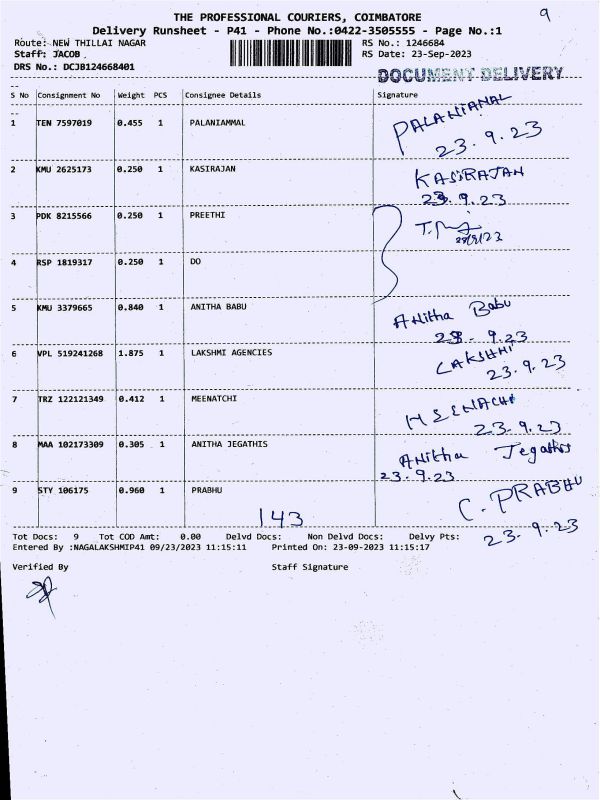 THE PROFESSIONAL COURIERS, COIMBATORE
9
Delivery Runsheet - P41 - Phone No.:0422-3505555 - Page No.:1
Route: NEW THILLAI NAGAR RS No.: 1246684
Staff: JACOB RS Date: 23-Sep-2023
DRS No.: DCJB124668401
DOCUMENT DELIVERY
S No Consignment No Weight PCS Consignee Details Signature
1 TEN 7597019 0.455 1 PALANIAMMAL PALANIAMAL
23.9.23
2 KMU 2625173 0.250 1 KASIRAJAN KASIRAJAN
23.9.23
3 PDK 8215566 0.250 1 PREETHI
23/9/23
4 RSP 1819317 0.250 1 DO
5 KMU 3379665 0.840 1 ANITHA BABU Anitha Babu
23.9.23
6 VPL 519241268 1.875 1 LAKSHMI AGENCIES LAKSHMI
23.9.23
7 TRZ 122121349 0.412 1 MEENATCHI MEENACHI
23.9.23
8 MAA 102173309 0.305 1 ANITHA JEGATHIS Anitha Jegathis
23.9.23
9 STY 106175 0.960 1 PRABHU C. PRABHU
143
23.9.23
Tot Docs: 9 Tot COD Amt: 0.00 Delvd Docs: Non Delvd Docs: Delvy Pts:
Entered By :NAGALAKSHMIP41 09/23/2023 11:15:11 Printed On: 23-09-2023 11:15:17
Verified By Staff Signature